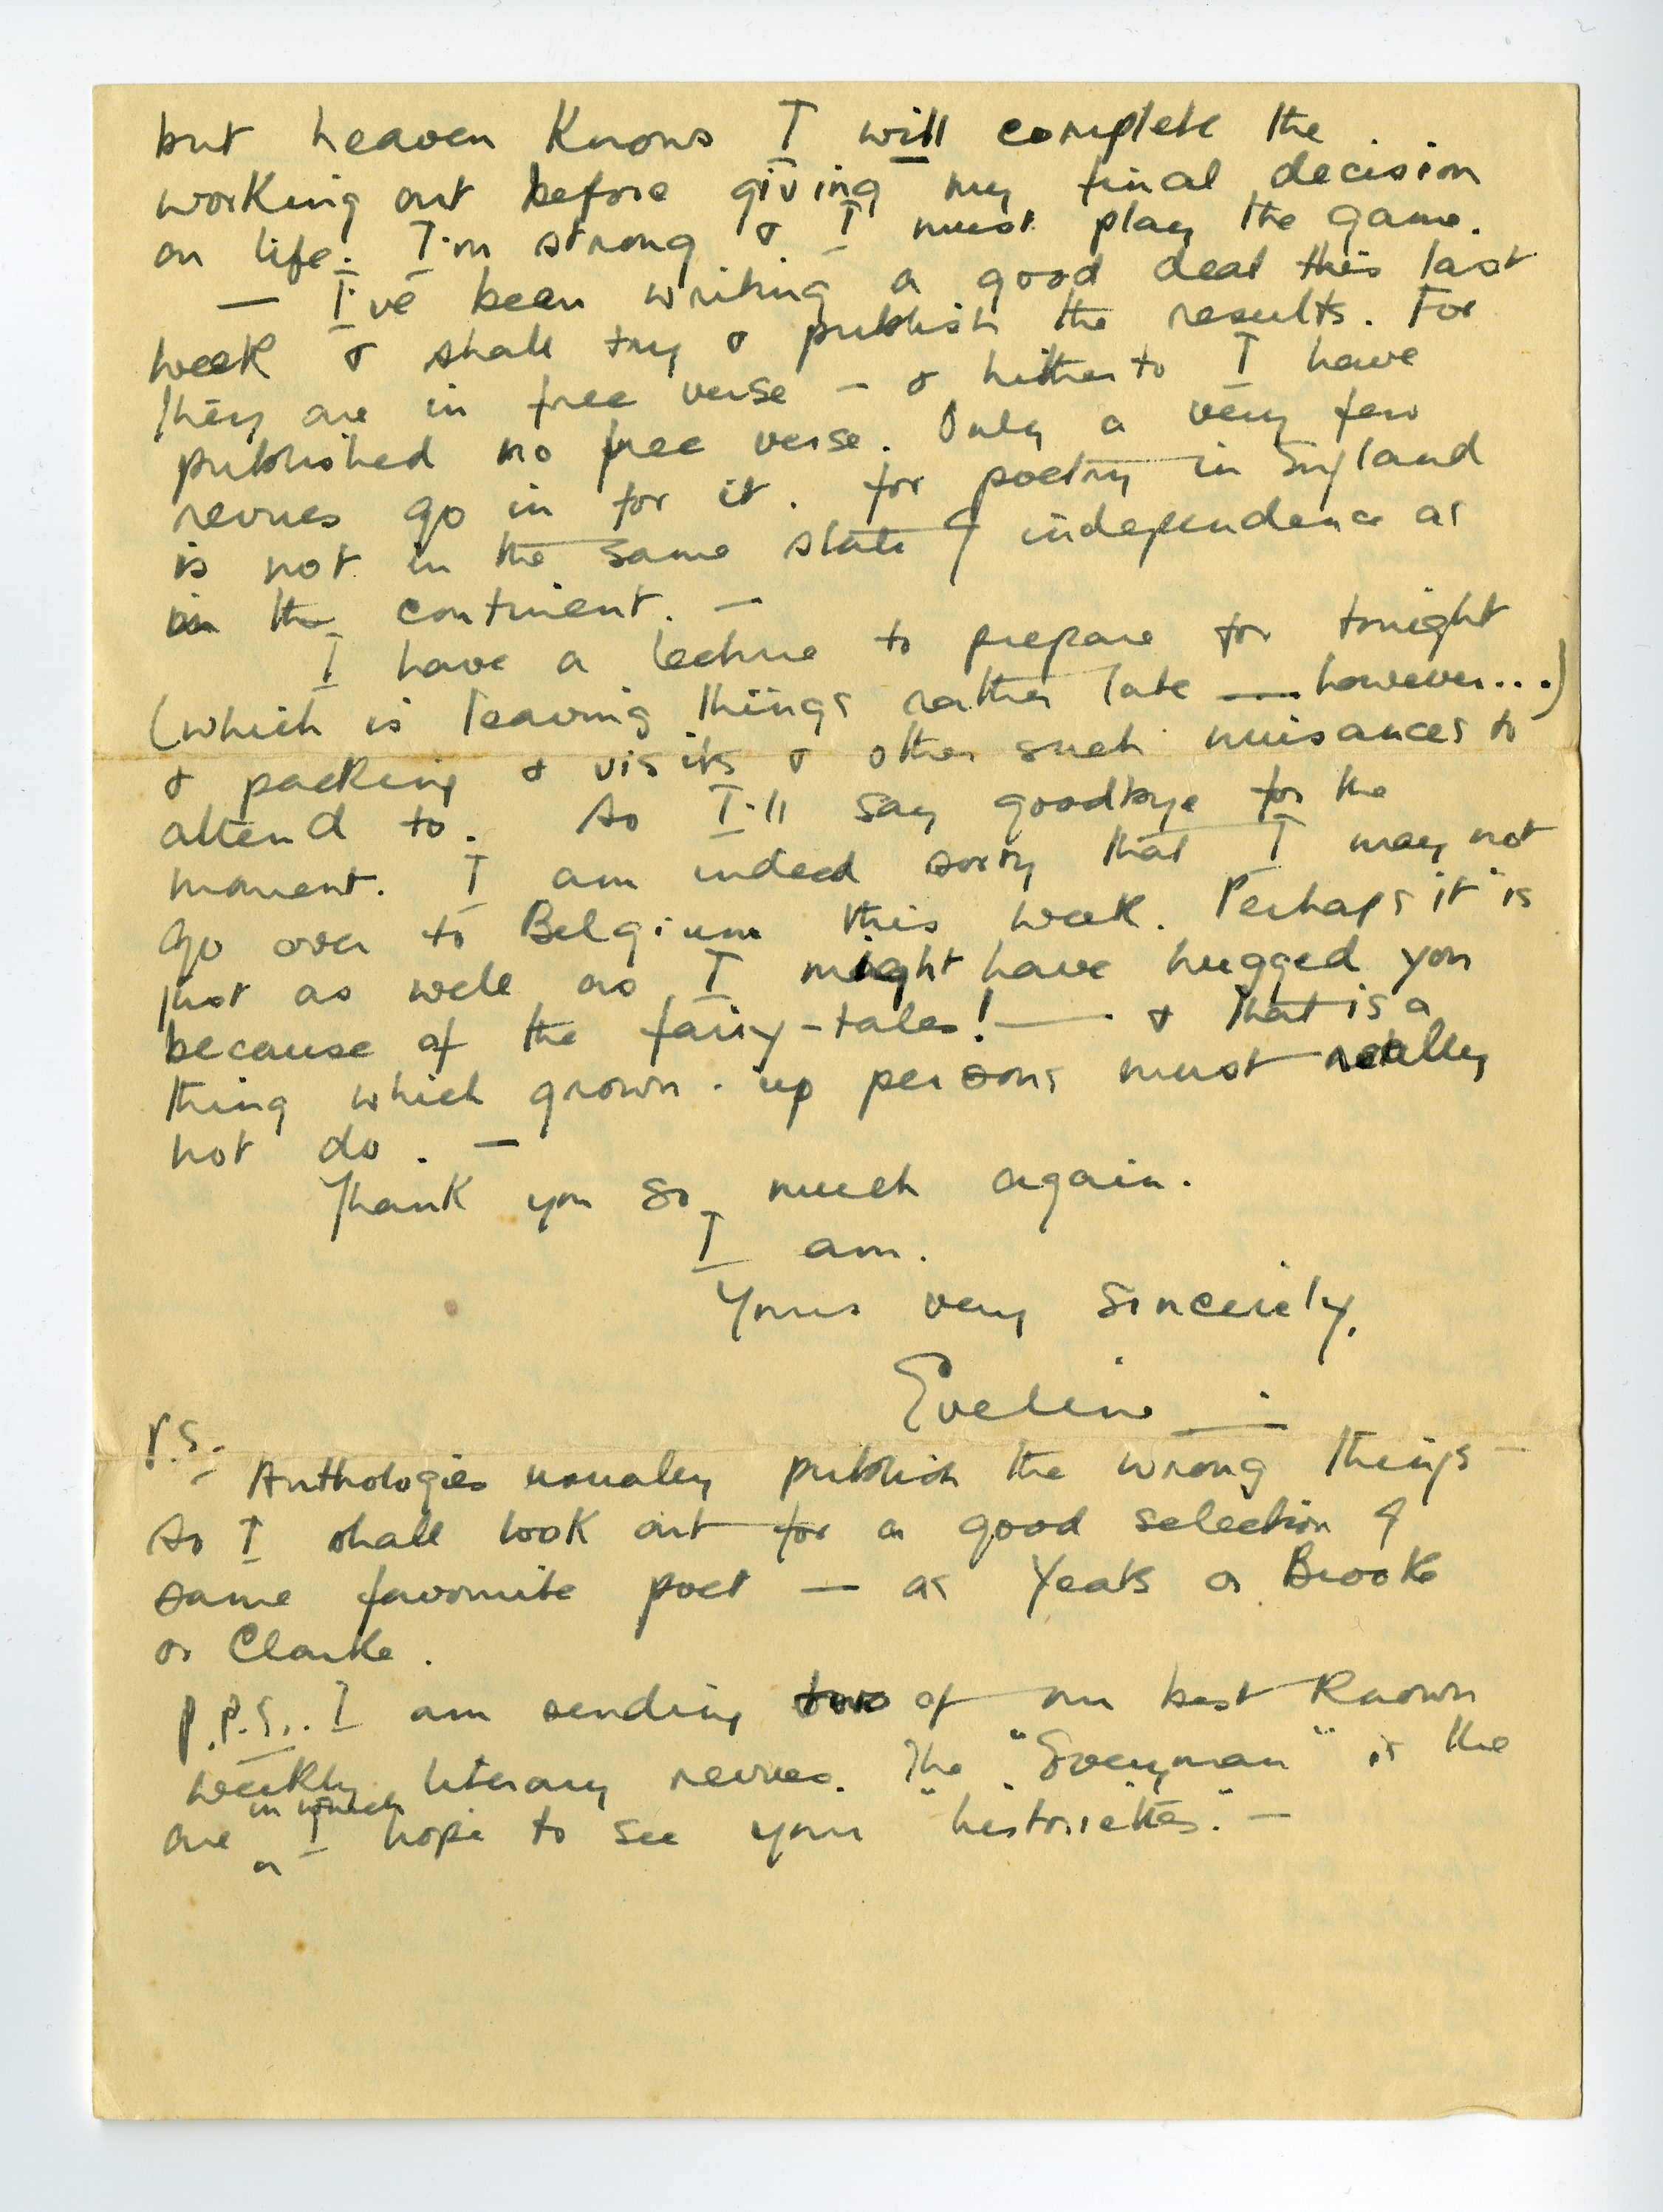 but heaven knows I will complete the
working out before giving my final decision
on life. I'm strong & I must play the game.
— I've been writing a good deal this last
week & shall try & publish the results. For
they are in free verse — & hitherto I have
published no free verse. Only a very few
revues go in for it. for poetry in England
is not in the same state of independence as
in the continent. —
I have a lecture to prepare for tonight
(which is leaving things rather late — however...)
& packing & visits & other such nuisances to
attend to. So I'll say goodbye for the
moment. I am indeed sorry that I may not
go over to Belgium this week. Perhaps it is
just as well as I might have hugged you
because of the fairy-tales! — & that is a
thing which grown-up persons must really
not do. —
Thank you so much again.
I am.
Yours very sincerely,
Eveline —
P.S.
- Anthologies usually publish the wrong things —
So I shall look out for a good selection of
same favourite poet — as Yeats or Brooke
or Clarke.
P.P.S.. I am sending two of our best known
weekly literary revues. The "Everyman" is the
one in which I hope to see your "historiettes." —
or